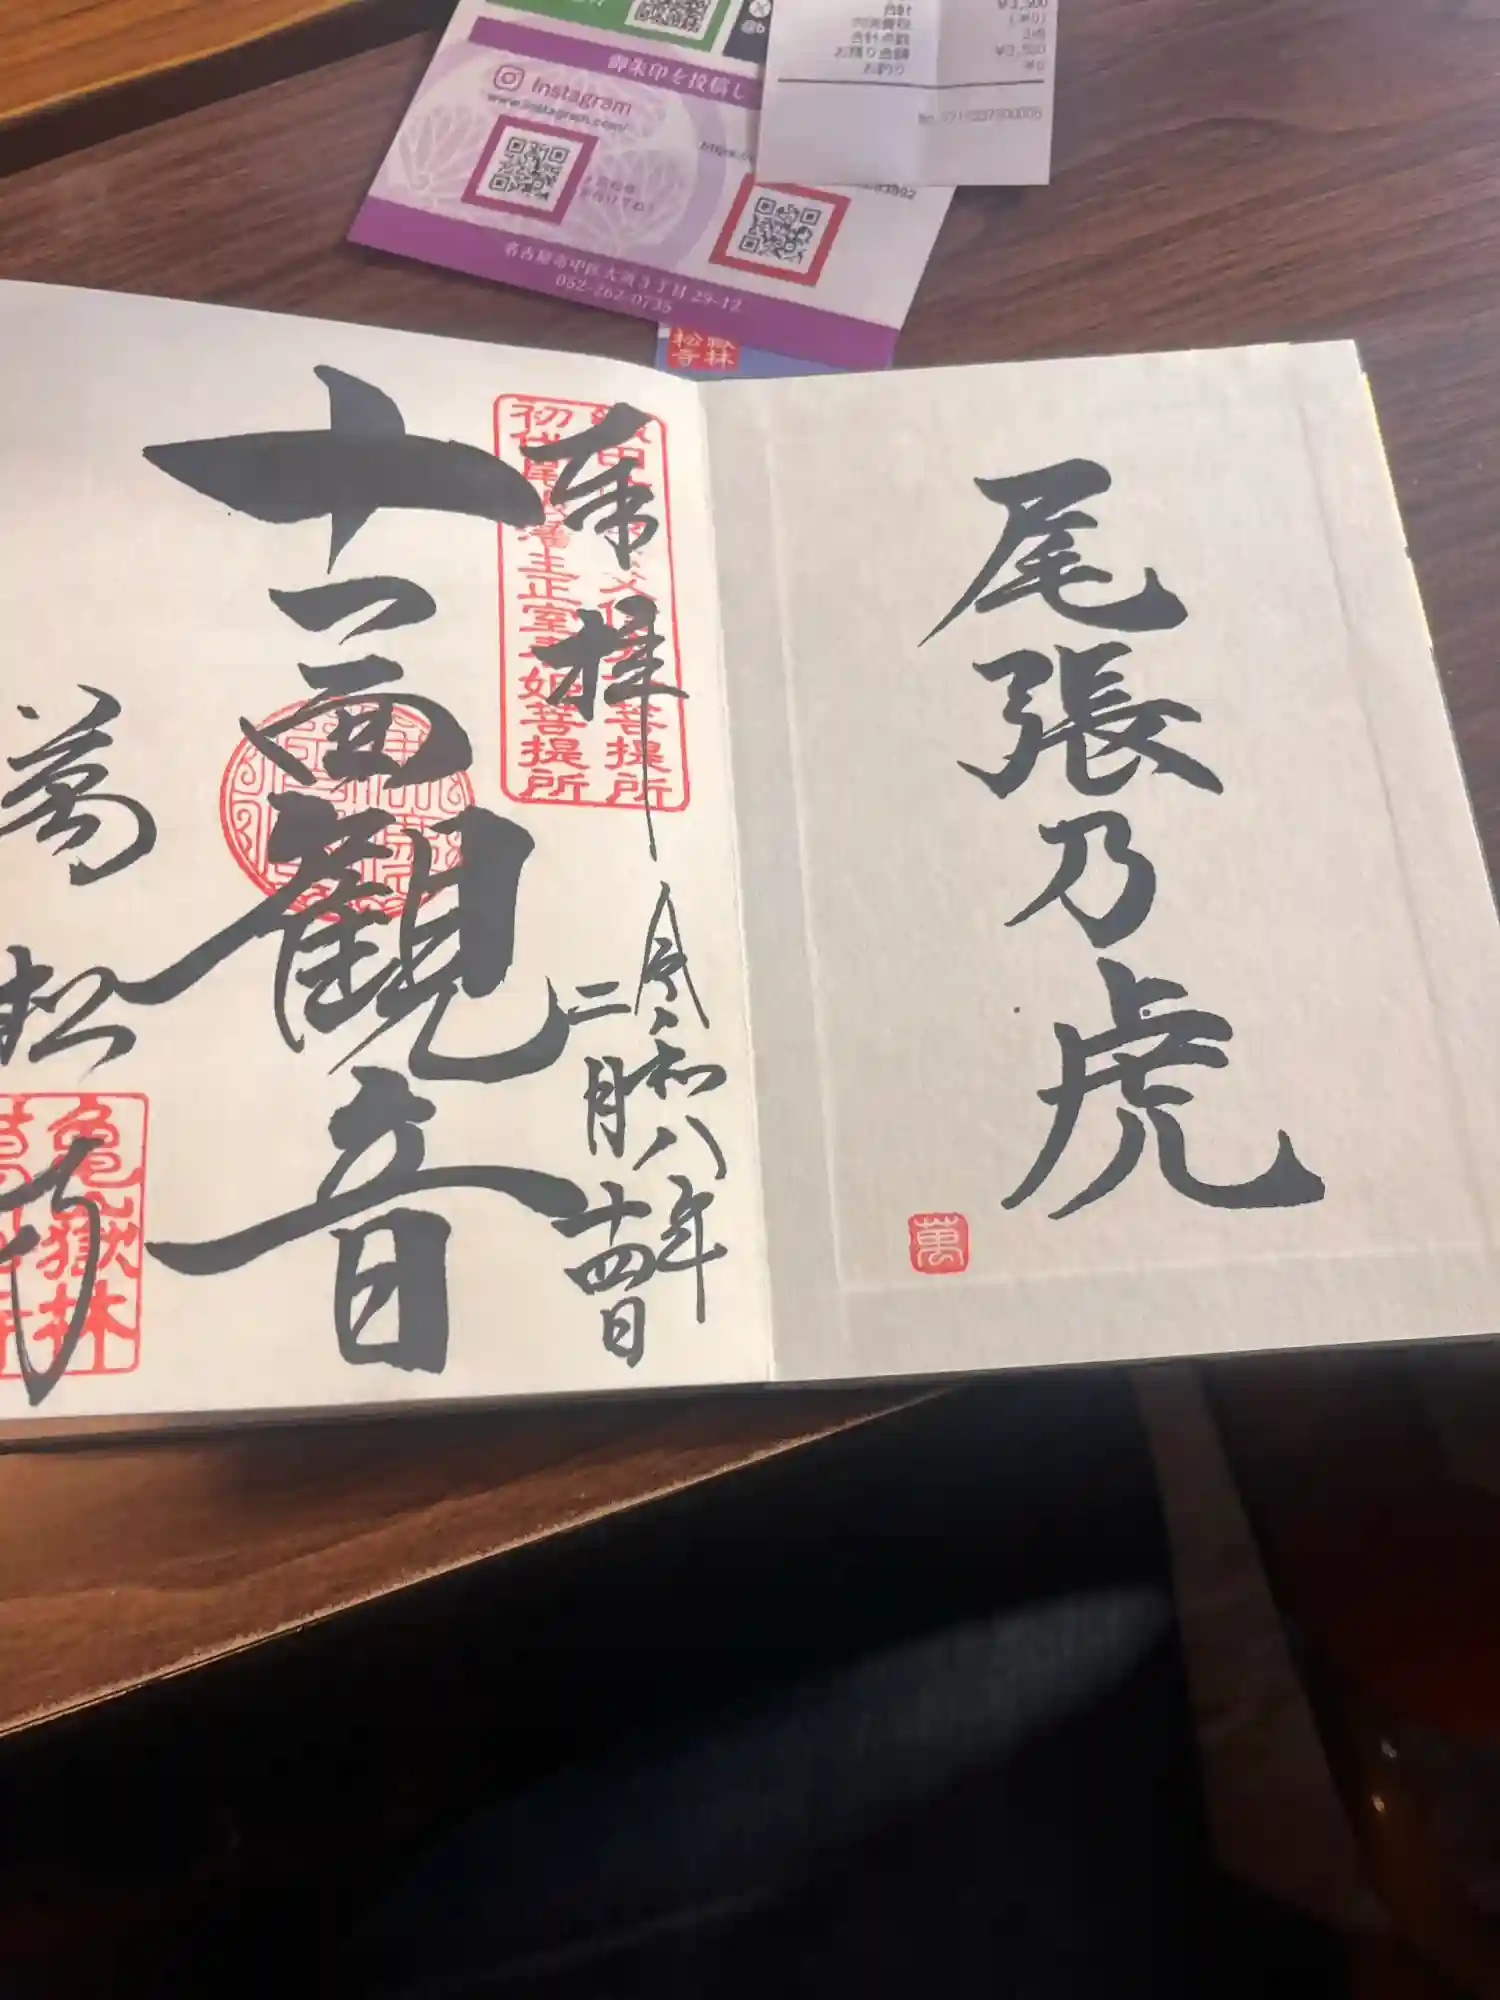 御朱印を投稿し
Instagram
www.instagram.com/
名古屋市中区大須3丁目29-12
052-262-0735
合計
¥3,500
合計点数
3点
お預り金額
¥3,500
お釣り
¥0
嶽林
松寺
尾張乃虎
萬
奉拝
令和八年
二月十四日
菩提所
初代尾張藩主正室春姫菩提所
十一面観音
萬松寺
亀嶽林